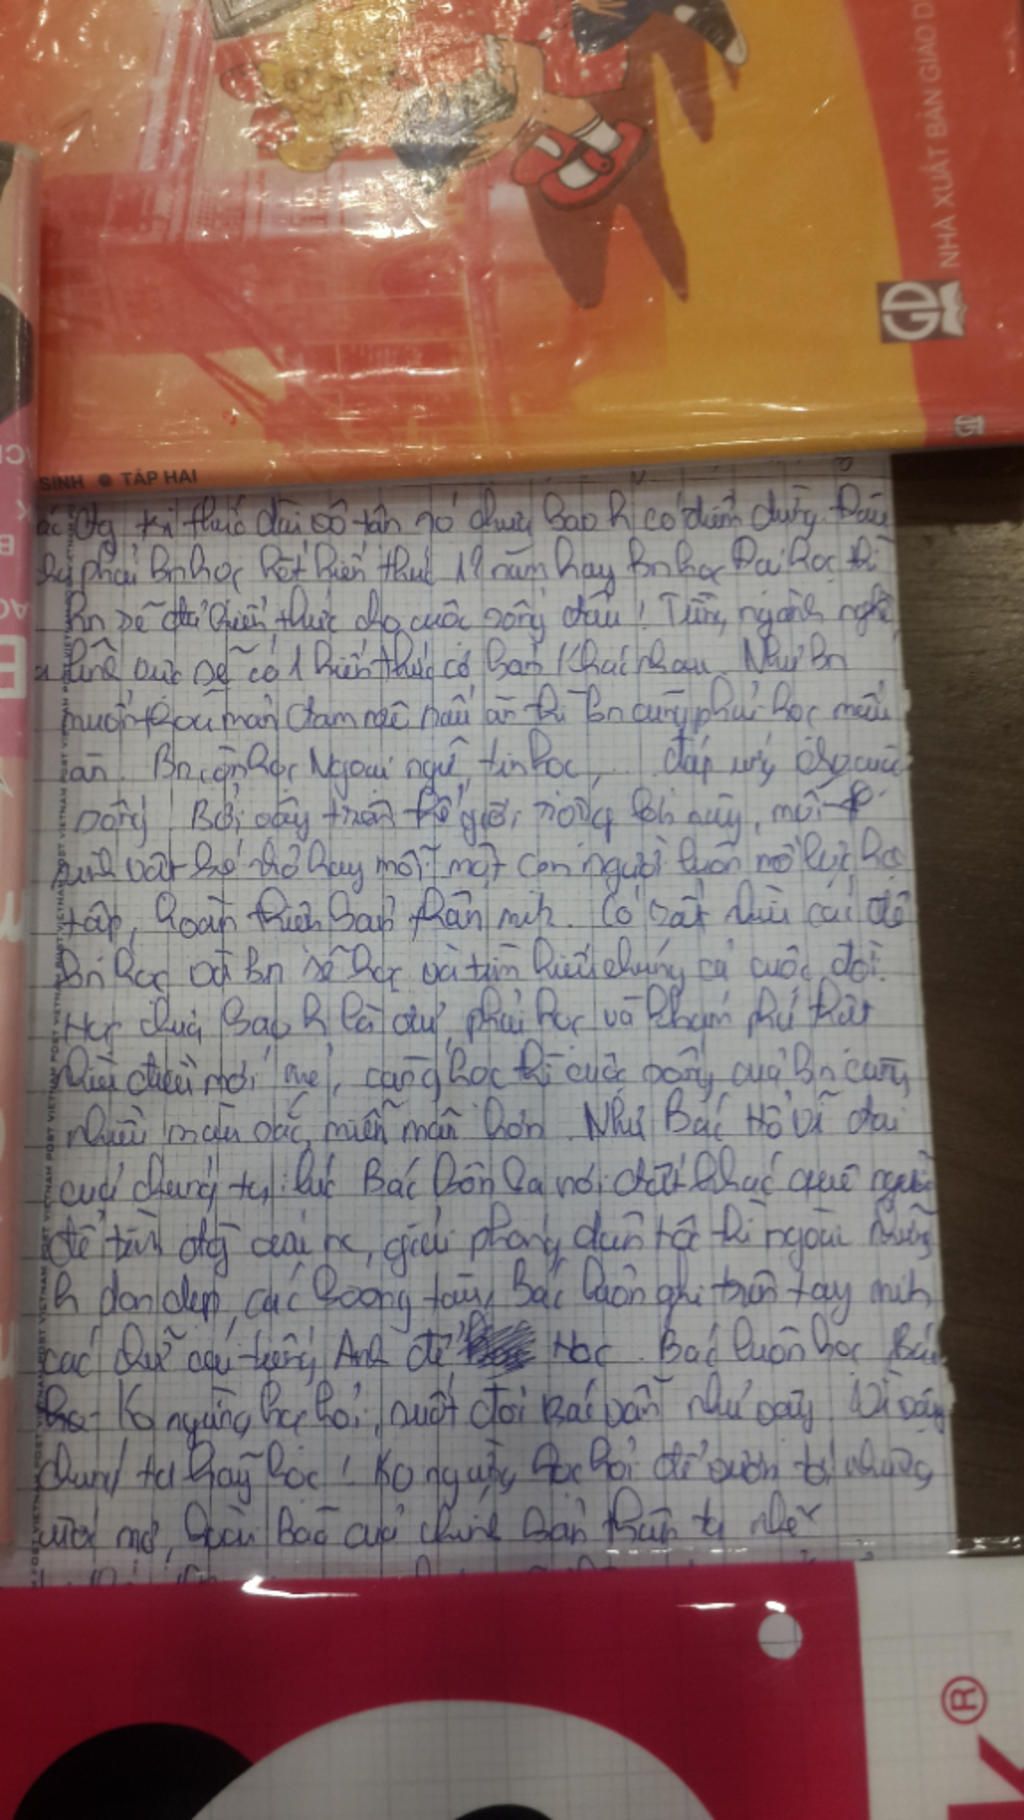 NHÀ XUẤT BẢN GIÁO D
GD
SINH ● TẬP HAI
tri thức dài vô tận nó chưa bao h có điểm dừng. Đâu
phải Bn học hết kiến thức 12 năm hay Bn học Đại học thì
Bn sẽ đủ kiến thức cho cuộc sống đâu! Từng ngành nghề,
lĩnh vực sẽ có 1 kiến thức cơ bản khác nhau. Như Bn
muốn thoả mãn đam mê nấu ăn thì Bn cũng phải học nấu
ăn. Bn cần học Ngoại ngữ, tin học, ... đáp ứng cho cuộc
sống! Bởi vậy trên thế giới rộng lớn này, mỗi
sinh vật bé nhỏ hay mỗi một con người luôn nỗ lực học
tập, hoàn thiện bản thân mìh. Có rất nhiều cái để
Bn học và Bn sẽ học và tìm hiểu chúng cả cuộc đời.
Học chưa bao h là đủ, phải học và khám phá thật
nhiều điều mới mẻ, càng học thì cuộc sống của Bn càng
nhiều màu sắc, miễn mãn hơn. Như Bác Hồ vĩ đại
của chúng ta, lúc Bác bôn ba nơi đất khác quê người
để tìm đg cứu nc, giải phóng dân tộc thì ngoài những
h dọn dẹp các boong tàu, Bác luôn ghi trên tay mìh
các chữ cái tiếng Anh để Học. Bác luôn học
Ko ngừng học hỏi, suốt đời Bác vẫn như vậy. Vì vậy
chúng ta hãy học! Ko ngừng học hỏi để vươn tới những
ước mơ, hoài bão của chính bản thân ta nhé
®
K